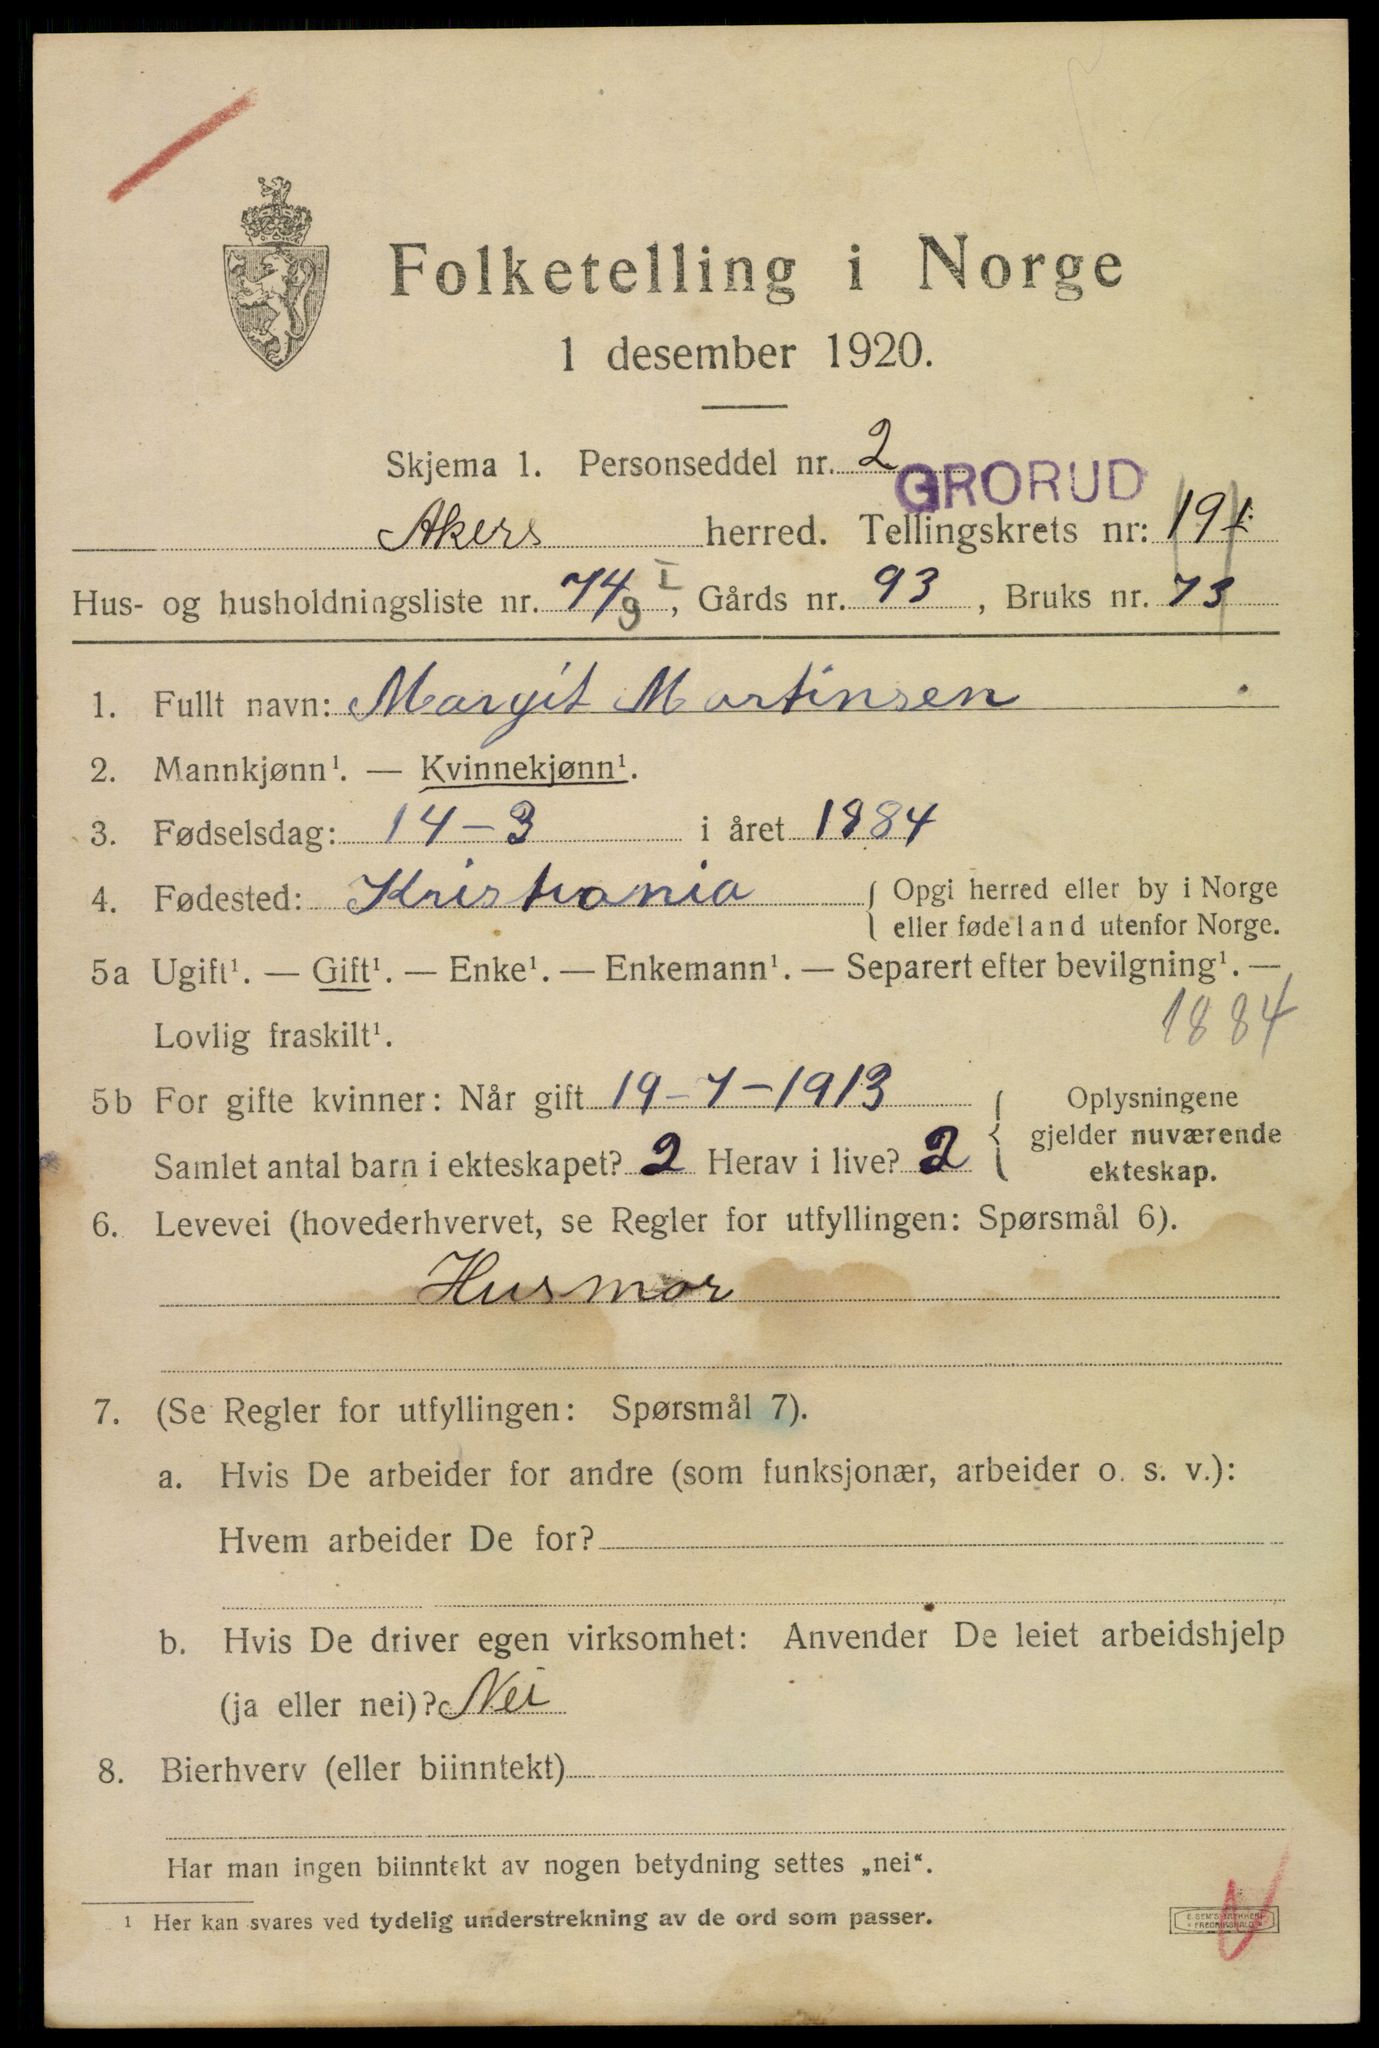 Folketelling i Norge
1 desember 1920.
Skjema 1. Personseddel nr. 2
GRORUD
Akers herred. Tellingskrets nr: 191
Hus- og husholdningsliste nr. 74 g I, Gårds nr. 93, Bruks nr. 73
1. Fullt navn: Margit Martinsen
2. Mannkjønn¹. — Kvinnekjønn¹.
3. Fødselsdag: 14-3 i året 1884
4. Fødested: Kristiania { Opgi herred eller by i Norge
eller fødeland utenfor Norge.
5a Ugift¹. — Gift¹. — Enke¹. — Enkemann¹. — Separert efter bevilgning¹. —
Lovlig fraskilt¹.
1884
5b For gifte kvinner: Når gift 19-7-1913 { Oplysningene
gjelder nuværende
Samlet antal barn i ekteskapet? 2 Herav i live? 2
ekteskap.
6. Levevei (hovederhvervet, se Regler for utfyllingen: Spørsmål 6).
Husmor
7. (Se Regler for utfyllingen: Spørsmål 7).
a. Hvis De arbeider for andre (som funksjonær, arbeider o. s. v.):
Hvem arbeider De for?
b. Hvis De driver egen virksomhet: Anvender De leiet arbeidshjelp
(ja eller nei)? Nei
8. Bierhverv (eller biinntekt)
Har man ingen biinntekt av nogen betydning settes „nei“.
¹ Her kan svares ved tydelig understrekning av de ord som passer.
FREDRIKSHALD